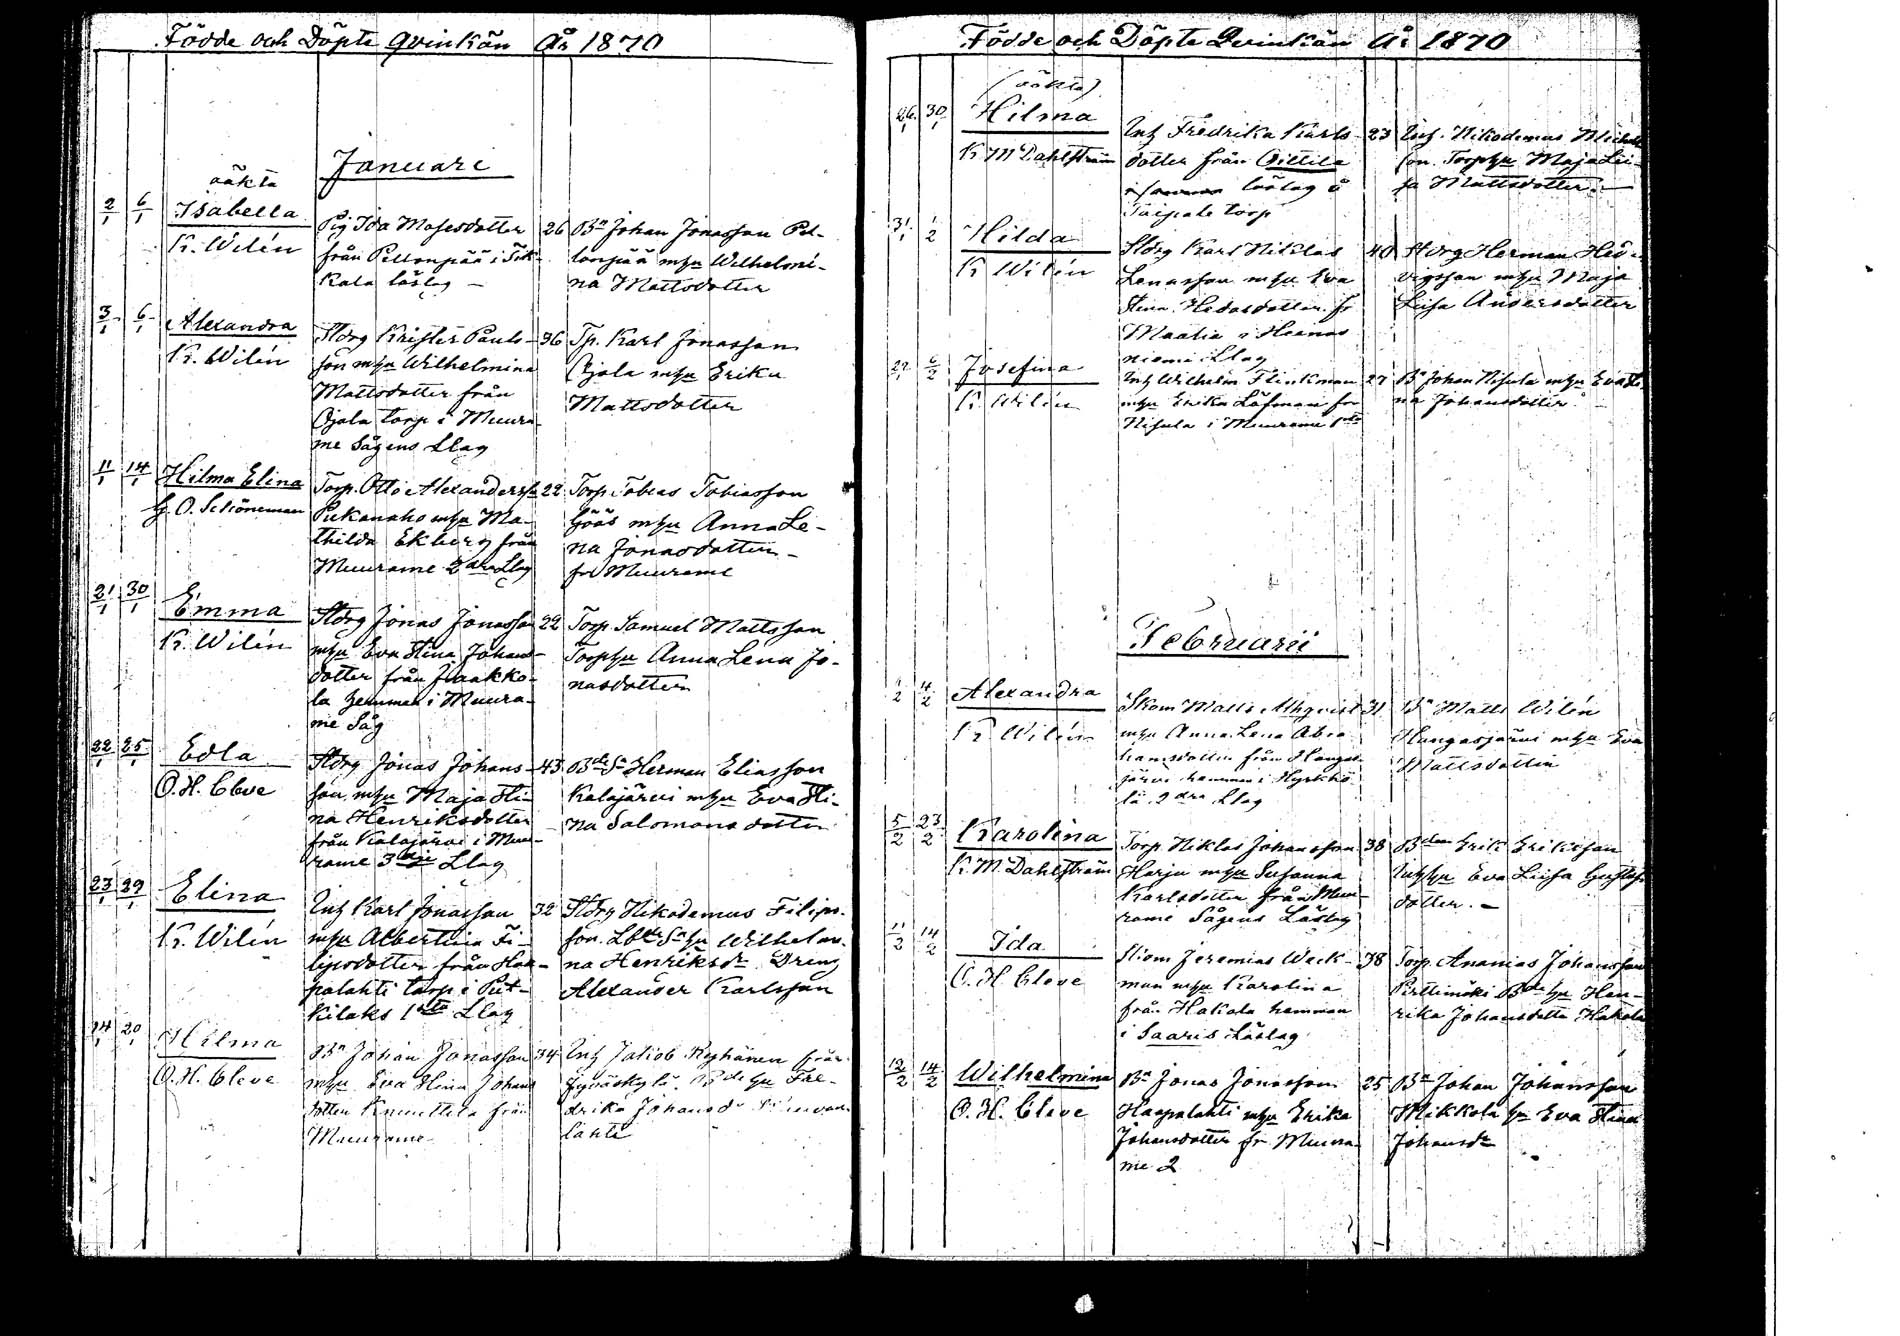 Födde och Döpte Qvinkön År 1870
Januari
2/1 6/1
oäkta
Isabella
K. Wilén
Pig Ida Mosesdotter
från Pellonpää i Tik-
kala låslag –
26
Bn Johan Jonasson Pel-
lonpää m hu Wilhelmi-
na Mattsdotter
3/1 6/1
Alexandra
K. Wilén
Stdrg Krister Pauls-
son m hu Wilhelmina
Mattsdotter från
Ojala torp i Muura-
me Sågens Llag
36
Tp. Karl Jonasson
Ojala m hu Erika
Mattsdotter
11/1 14/1
Hilma Elina
G. O. Schöneman
Torp. Otto Alexanderss
Pukanaho m hu Ma-
thilda Ekberg från
Muurame 2dra Llag
22
Torp Tobias Tobiasson
Löös m hu Anna Le-
na Jonasdotter –
fr Muurame
21/1 30/1
Emma
K. Wilén
Stdrg Jonas Jonasson
m hu Eva Stina Johans-
dotter från Jaakko-
la hemman i Muura-
me Såg
22
Torp Samuel Mattsson
Torp hu Anna Lena Jo-
nasdotter
22/1 25/1
Edla
O. H. Cleve
Stdrg Jonas Johans-
son m hu Maja Sti-
na Henriksdotter
från Kalajärvi i Muu-
rame 3dje Llag
43
Bde Sn Herman Eliasson
Kalajärvi m hu Eva Sti-
na Salomonsdotter
23/1 29/1
Elina
K. Wilén
Inh Karl Jonasson
m hu Albertina Fi-
lipsdotter från Haa-
palahti torp i Put-
kilaks 1sta Llag
32
Stdrg Nikodemus Filips-
son. Lbde Sn hu Wilhelmi-
na Henriksdr Dreng
Alexander Karlsson
14/1 20/1
Hilma
O. H. Cleve
Bn Johan Jonasson
m hu Eva Stina Johans
dotter Knuuttila från
Muurame
34
Inh Jakob Ryhänen från
Jyväskylä. Bde hu Fre-
drika Johansdr
lahti
Födde och Döpte Qvinkön År 1870
26/1 30/1
(oäkta)
Hilma
K M Dahlström
Inh Fredrika Karls-
dotter från Oittila
låslag å
Taipale torp
23
Inh. Nikodemus Michels
son. Torp hu Maja Lii-
sa Mattsdotter. –
31/1 1/2
Hilda
K Wilén
Stdrg Karl Niklas
Lenasson m hu Eva
Stina Hedasdotter fr
Maatia i Heinos
niemi Llag
40
Stdrg Herman Hed-
vigsson m hu Maja
Liisa Andersdotter
22/1 6/2
Josefina
K. Wilén
Inh Wilhelm Flinkman
m hu Erika Löfman fr
Nisula i Muurame 1sta
27
Bn Johan Nisula m hu Eva Sti
na Johansdotter
Februarii
1/2 4/2
Alexandra
K Wilén
Skom Matts Ahlqvist
m hu Anna Lena Abra
hamsdotter från Hangas
järvi hemman i Hyrkkö
lä 2dra Llag
31
Bn Matts Wilén
Hangasjärvi m hu Eva
Mattsdotter
5/2 23/2
Karolina
K. M. Dahlström
Torp Niklas Johansson
Harju m hu Susanna
Karlsdotter från Muu-
rame Sågens Låslag
38
Bden Erik Eriksson
Inh hu Eva Liisa Gustafs
dotter. –
11/2 14/2
Ida
O. H Cleve
Skom Jeremias Weck-
man m hu Karolina
från Hakala hemman
i Saaris Låslag
38
Torp. Ananias Johansson
Perttimäki Bde hu Hen-
rika Johansdotte Hakala
12/2 14/2
Wilhelmina
O. H. Cleve
Bn Jonas Jonasson
Haapalahti m hu Erika
Johansdotter fr Muura-
me 2
25
Bn Johan Johansson
Mikkola hu Eva Stina
Johansdr